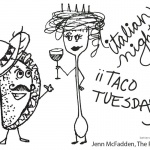 italian
night
¡¡TACO
TUESDA
Jenn McFadden, The